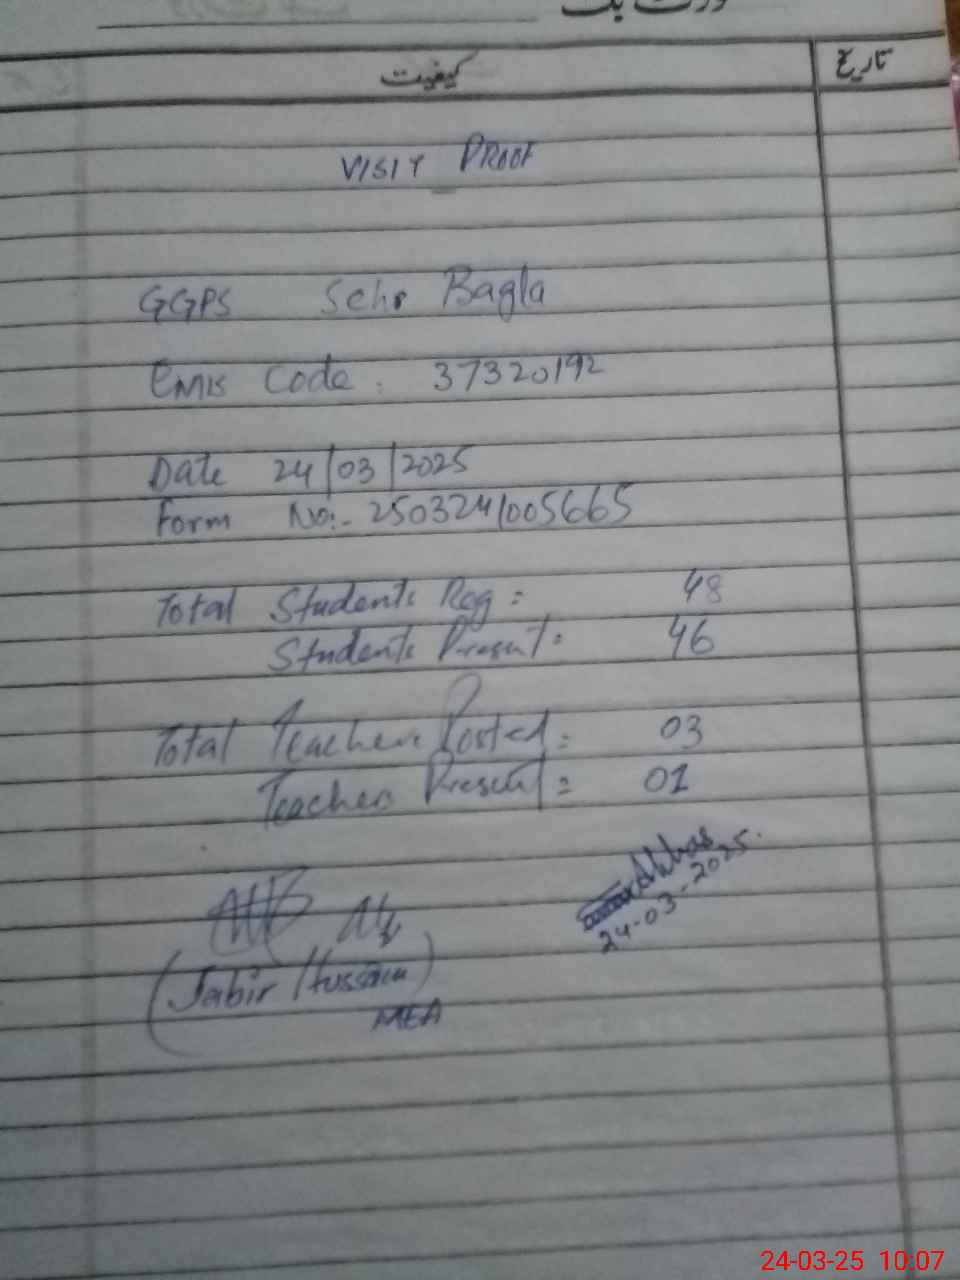 کیفیت تاریخ
VISIT PROOF
GGPS Sehr Bagla
EMIS Code: 37320192
Date 24/03/2025
Form No:- 250324/005665
Total Students Reg: 48
Students Present: 46
Total Teachers Posted: 03
Teacher Present: 01
24-03-2025.
(Jabir Hussain)
MEA
24-03-25 10:07